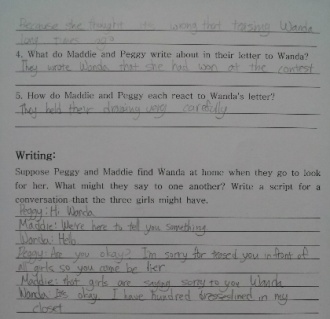 Because she thought it's wrong that teasing Wanda
long times ago
4. What do Maddie and Peggy write about in their letter to Wanda?
They wrote Wanda that she had won at the contest
5. How do Maddie and Peggy each react to Wanda's letter?
They held their drawing very carefully
Writing:
Suppose Peggy and Maddie find Wanda at home when they go to look
for her. What might they say to one another? Write a script for a
conversation that the three girls might have.
Peggy: Hi Wanda
Maddie: We're here to tell you something
Wanda: Hello
Peggy: Are you okay? I'm sorry for teased you infront of
all girls so you came be lier
Maddie: that girls are saying sorry to you Wanda
Wanda: okay. I have hundred dresses lined in my
closet